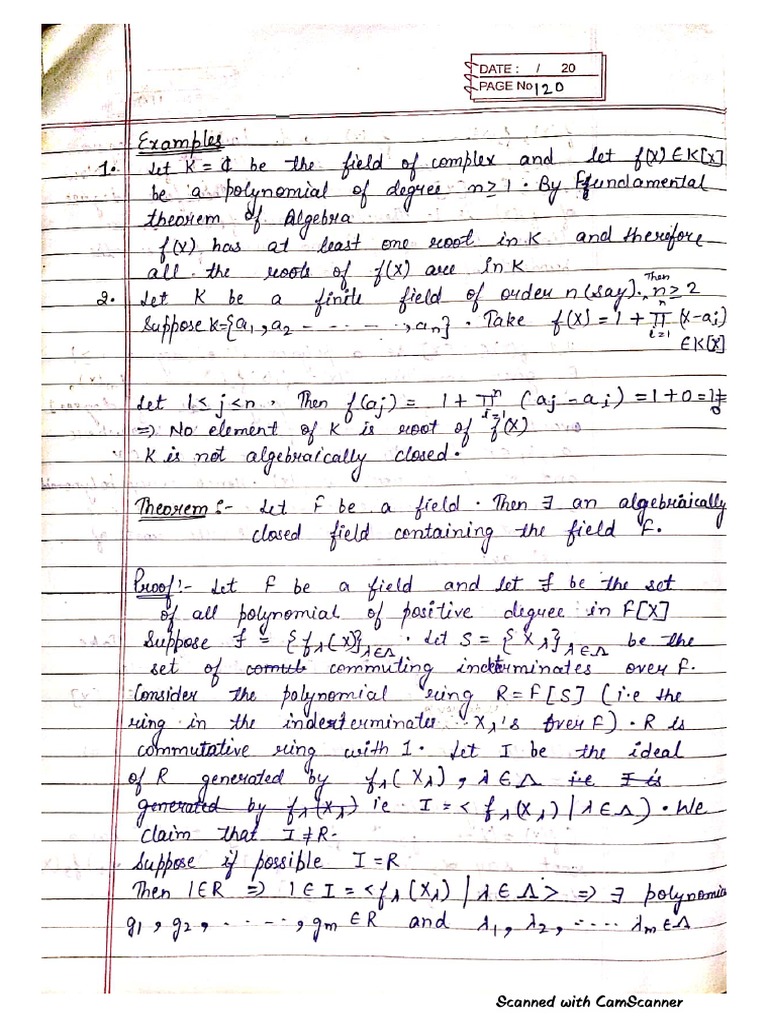 DATE : / 20
PAGE No 120
Examples
1. Let K = ₵ be the field of complex and let f(x) ∈ K[x]
be a polynomial of degree n ≥ 1. By Ffundamental
theorem of Algebra
f(x) has at least one root in K and therefore
all the roots of f(x) are in K
Then
2. Let K be a finite field of order n (say). n ≥ 2
Suppose K={a₁, a₂ - - - - - -, aₙ}. Take f(x) = 1 + ∏ⁿᵢ₌₁ (x-aᵢ)
∈ K[x]
Let 1 ≤ j ≤ n, Then f(aj) = 1 + ∏ⁿᵢ₌₁ (aj - aᵢ) = 1+0=1≠
0
⇒ No element of K is root of f(x)
K is not algebraically closed.
Theorem :- Let F be a field. Then ∃ an algebraically
closed field containing the field F.
Proof :- Let F be a field and let Ƒ be the set
of all polynomial of positive degree in F[x]
Suppose Ƒ = {f_λ(x)}_λ∈Λ. Let S = {X_λ}_λ∈Λ be the
set of commuting indeterminates over F.
Consider the polynomial ring R = F[S] (i.e the
ring in the indeterminates X_λ's over F). R is
commutative ring with 1. Let I be the ideal
of R generated by f_λ(X_λ), λ ∈ Λ i.e I is
generated by f_λ(X_λ) ie. I = < f_λ(X_λ) | λ ∈ Λ ). We
claim that I ≠ R.
Suppose if possible I = R
Then 1∈R ⇒ 1 ∈ I = <f_λ(X_λ) | λ ∈ Λ > ⇒ ∃ polynomia
g₁, g₂, - - - - -, gₘ ∈ R and λ₁, λ₂, - - - - λₘ ∈ Λ
Scanned with CamScanner